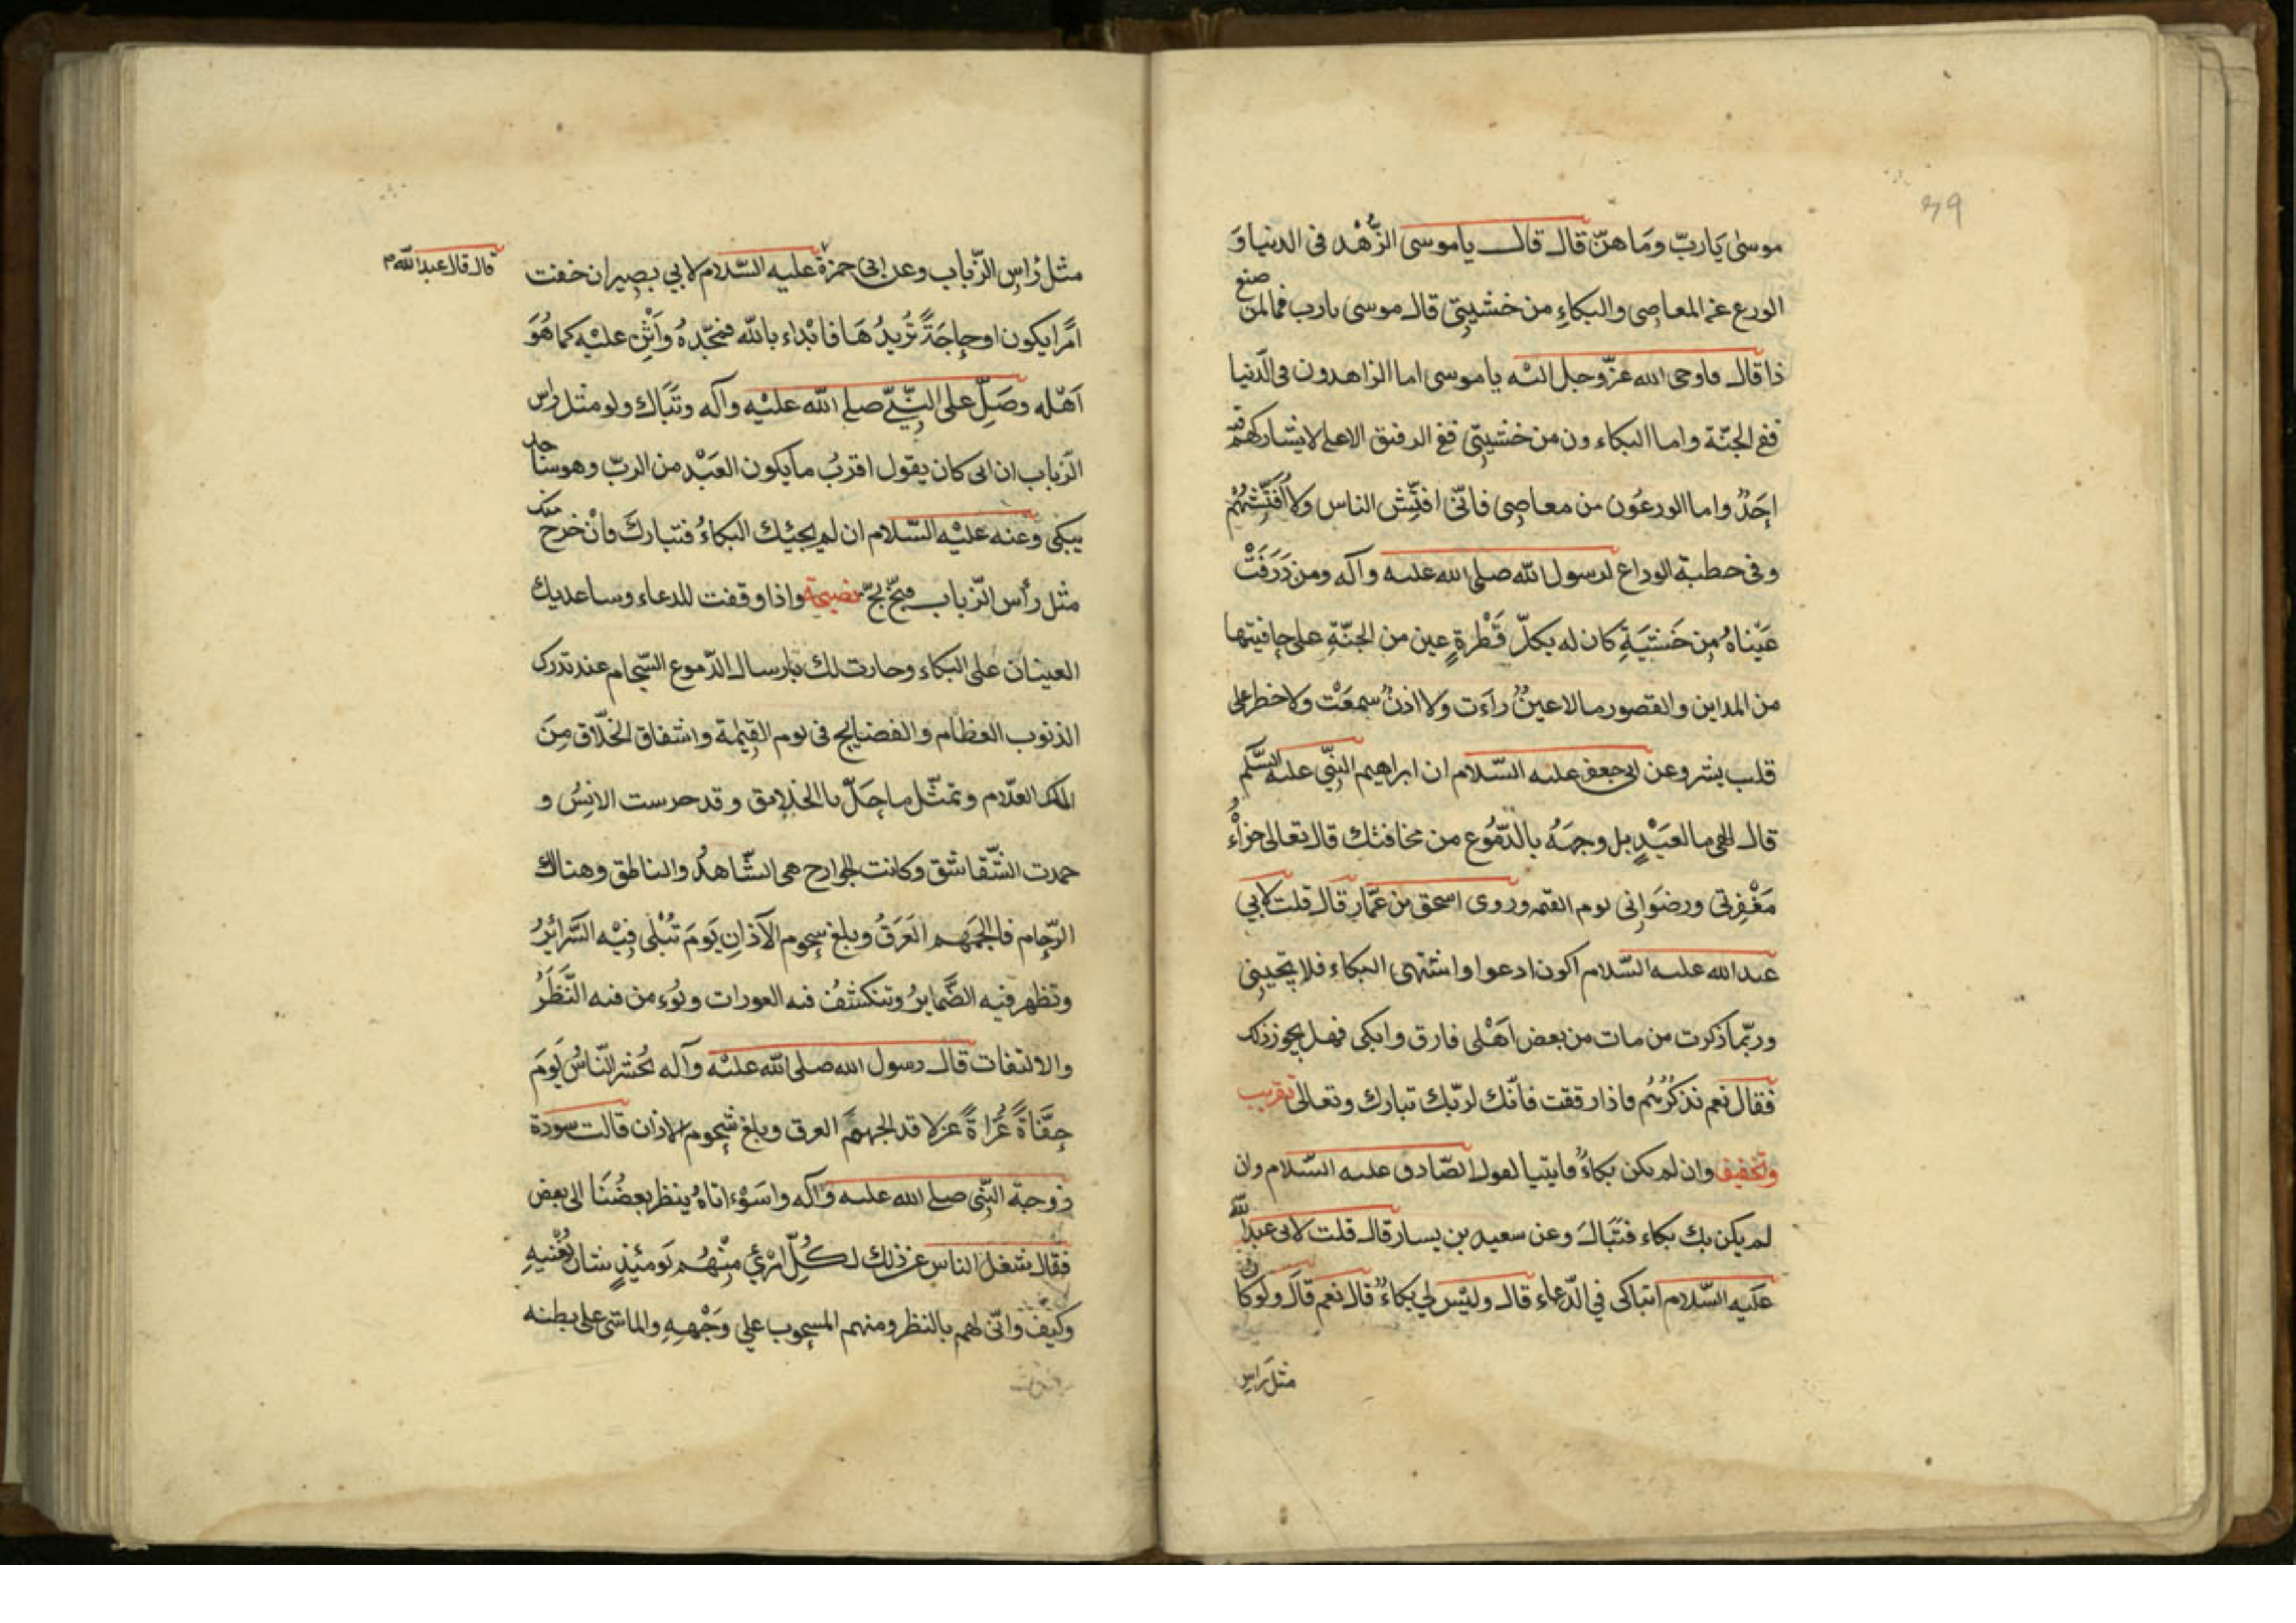 ٣٩
موسىٰ يَاربّ ومَا هنّ قال قال يا موسى الزُّهْد فى الدنيا وَ
الورع عن المعاصِى والبكاءِ من خشيتِى قال موسى يا رب فما لمن صنع
ذا قال فاوحى الله عزّ وجل اليه يا موسى اما الزاهدون فى الدّنيا
ففى الجنّة واما البكاءون من خشيتِى ففى الرفيق الاعلى لا يشاركهم فيه
احَدٌ واما الورعُون من معاصِى فانّى افتِّش الناس ولا اُفَتِّشهُمْ
وفى خطبة الوداع لرسول الله صلى الله عليه وآله ومن ذَرَفَتْ
عَيْناهُ مِن خَشيَةِ كان له بكلّ قَطْرةٍ عين من الجنّةِ على حافيتها
من المداين والقصور ما لا عينٌ راءَت ولا اذنٌ سمعَتْ ولا خطر على
قلب بشر وعن ابى جعفر عليه السّلام ان ابراهيم النبّى عليه السَّلَم
قال الهى ما لعَبْدٍ بل وجهَهُ بالدّمُوع من مخافتك قال تعالى جزاؤُ
مَغْفِرتى ورضوَانى يوم القيمه وروى اسحق بن عمّار قال قلت لابي
عبد الله عليه السّلام اكون ادعوا واشتهى البكاء فلا يجيئنِى
وربّما ذكرت من مات من بعض اهْلى فارق وابكى فهل يجوز ذلك
فقال نعم تذكرُهُم فاذا رققت فابك لربّك تبارك وتعالى تقريب
وتخفيف وان لم يكن بكاءٌ فليتباك لقول الصّادق عليه السّلام وان
لم يكن بك بكاء فتَبَاكَ وعن سعيد بن يسار قال قلت لابى عبد الله
عليه السّلام اتباكى في الدّعاء قال وليْس لي بكاءٌ قال نعم قال ولو كان
مثل رَاسِ
مثل رْاسِ الذّباب وعن ابى حمزة عليه السّلام لابي بصِير ان خفت
قال قال عبد الله م
امرًا يكون او حاجَةً تُريدُهَا فابْداء بالله فمجّدهُ وَاثْنِ عليْهِ كما هُوَ
اَهْله وصَلِّ على النبّيِّ صلى الله عليْه وآله وتَبَاك ولو مثل راس
الذّباب ان ابى كان يقول اقربُ ما يكون العَبْد من الربّ وهو ساجد
يبكى وعنه عليْه السّلام ان لم يجئك البكاءُ فتباركَ فانْ خرج منك
مثل رأس الذّباب فبَخٍّ بَخٍّ نصيحة واذا وقفت للدعاء وساعديك
العينان على البكاء وجادت لك بارسال الدّموع السّجام عند تدرك
الذنوب العظام والفضايح فى يوم القِيٰمة واشفاق الخلّاق مِنَ
الملك العلّام وتمثّل ما حَلّ بالخلايق وقد خرست الانِسُ و
خمدت الشّقاشق وكانت الجوارح هى الشّاهدُ والناطق وهناك
الزّحام فالجمَهم العَرَقُ وبلغ سحوم الآذانِ يَومَ تُبْلى فِيْه السَّرائِرُ
وتظهر فيه الضّمايرُ وتنكشفُ فيه العورات ويُوءمن فيه النَّظَرُ
والالتفات قال رسول الله صلى الله عليْه وآله يحُشر النّاسُ يَومَ
حِفَاةً عُراةً عزلا قد الجمهُم العرق وبلغ شحوم الاذان قالت سودة
زوجة النّبى صلى الله عليه وآله واسَوْءاتاهُ ينظر بعضُنَا الى بعض
فقال شغل الناس عن ذلك لكُلِّ امْرئٍ مِنْهُم يَومئِذٍ شان يُغْنيهِ
وكيف وانّى لهم بالنظر ومنهم المسحوب على وَجْههِ والماشى على بطنه